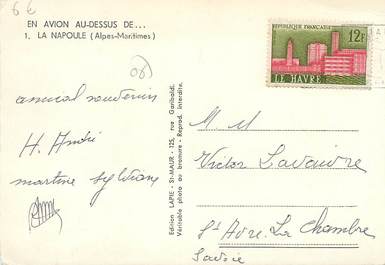 6 €
EN AVION AU-DESSUS DE...
1. LA NAPOULE (Alpes-Maritimes)
(06)
amical souvenir
H. André
martine sylviane
Edition LAPIE - St-MAUR - 125, rue Garibaldi.
Véritable photo au bromure - Reprod. interdite.
REPUBLIQUE FRANÇAISE
12F
LE HAVRE
M. M
Victor
St Avre. La Chambre
Savoie